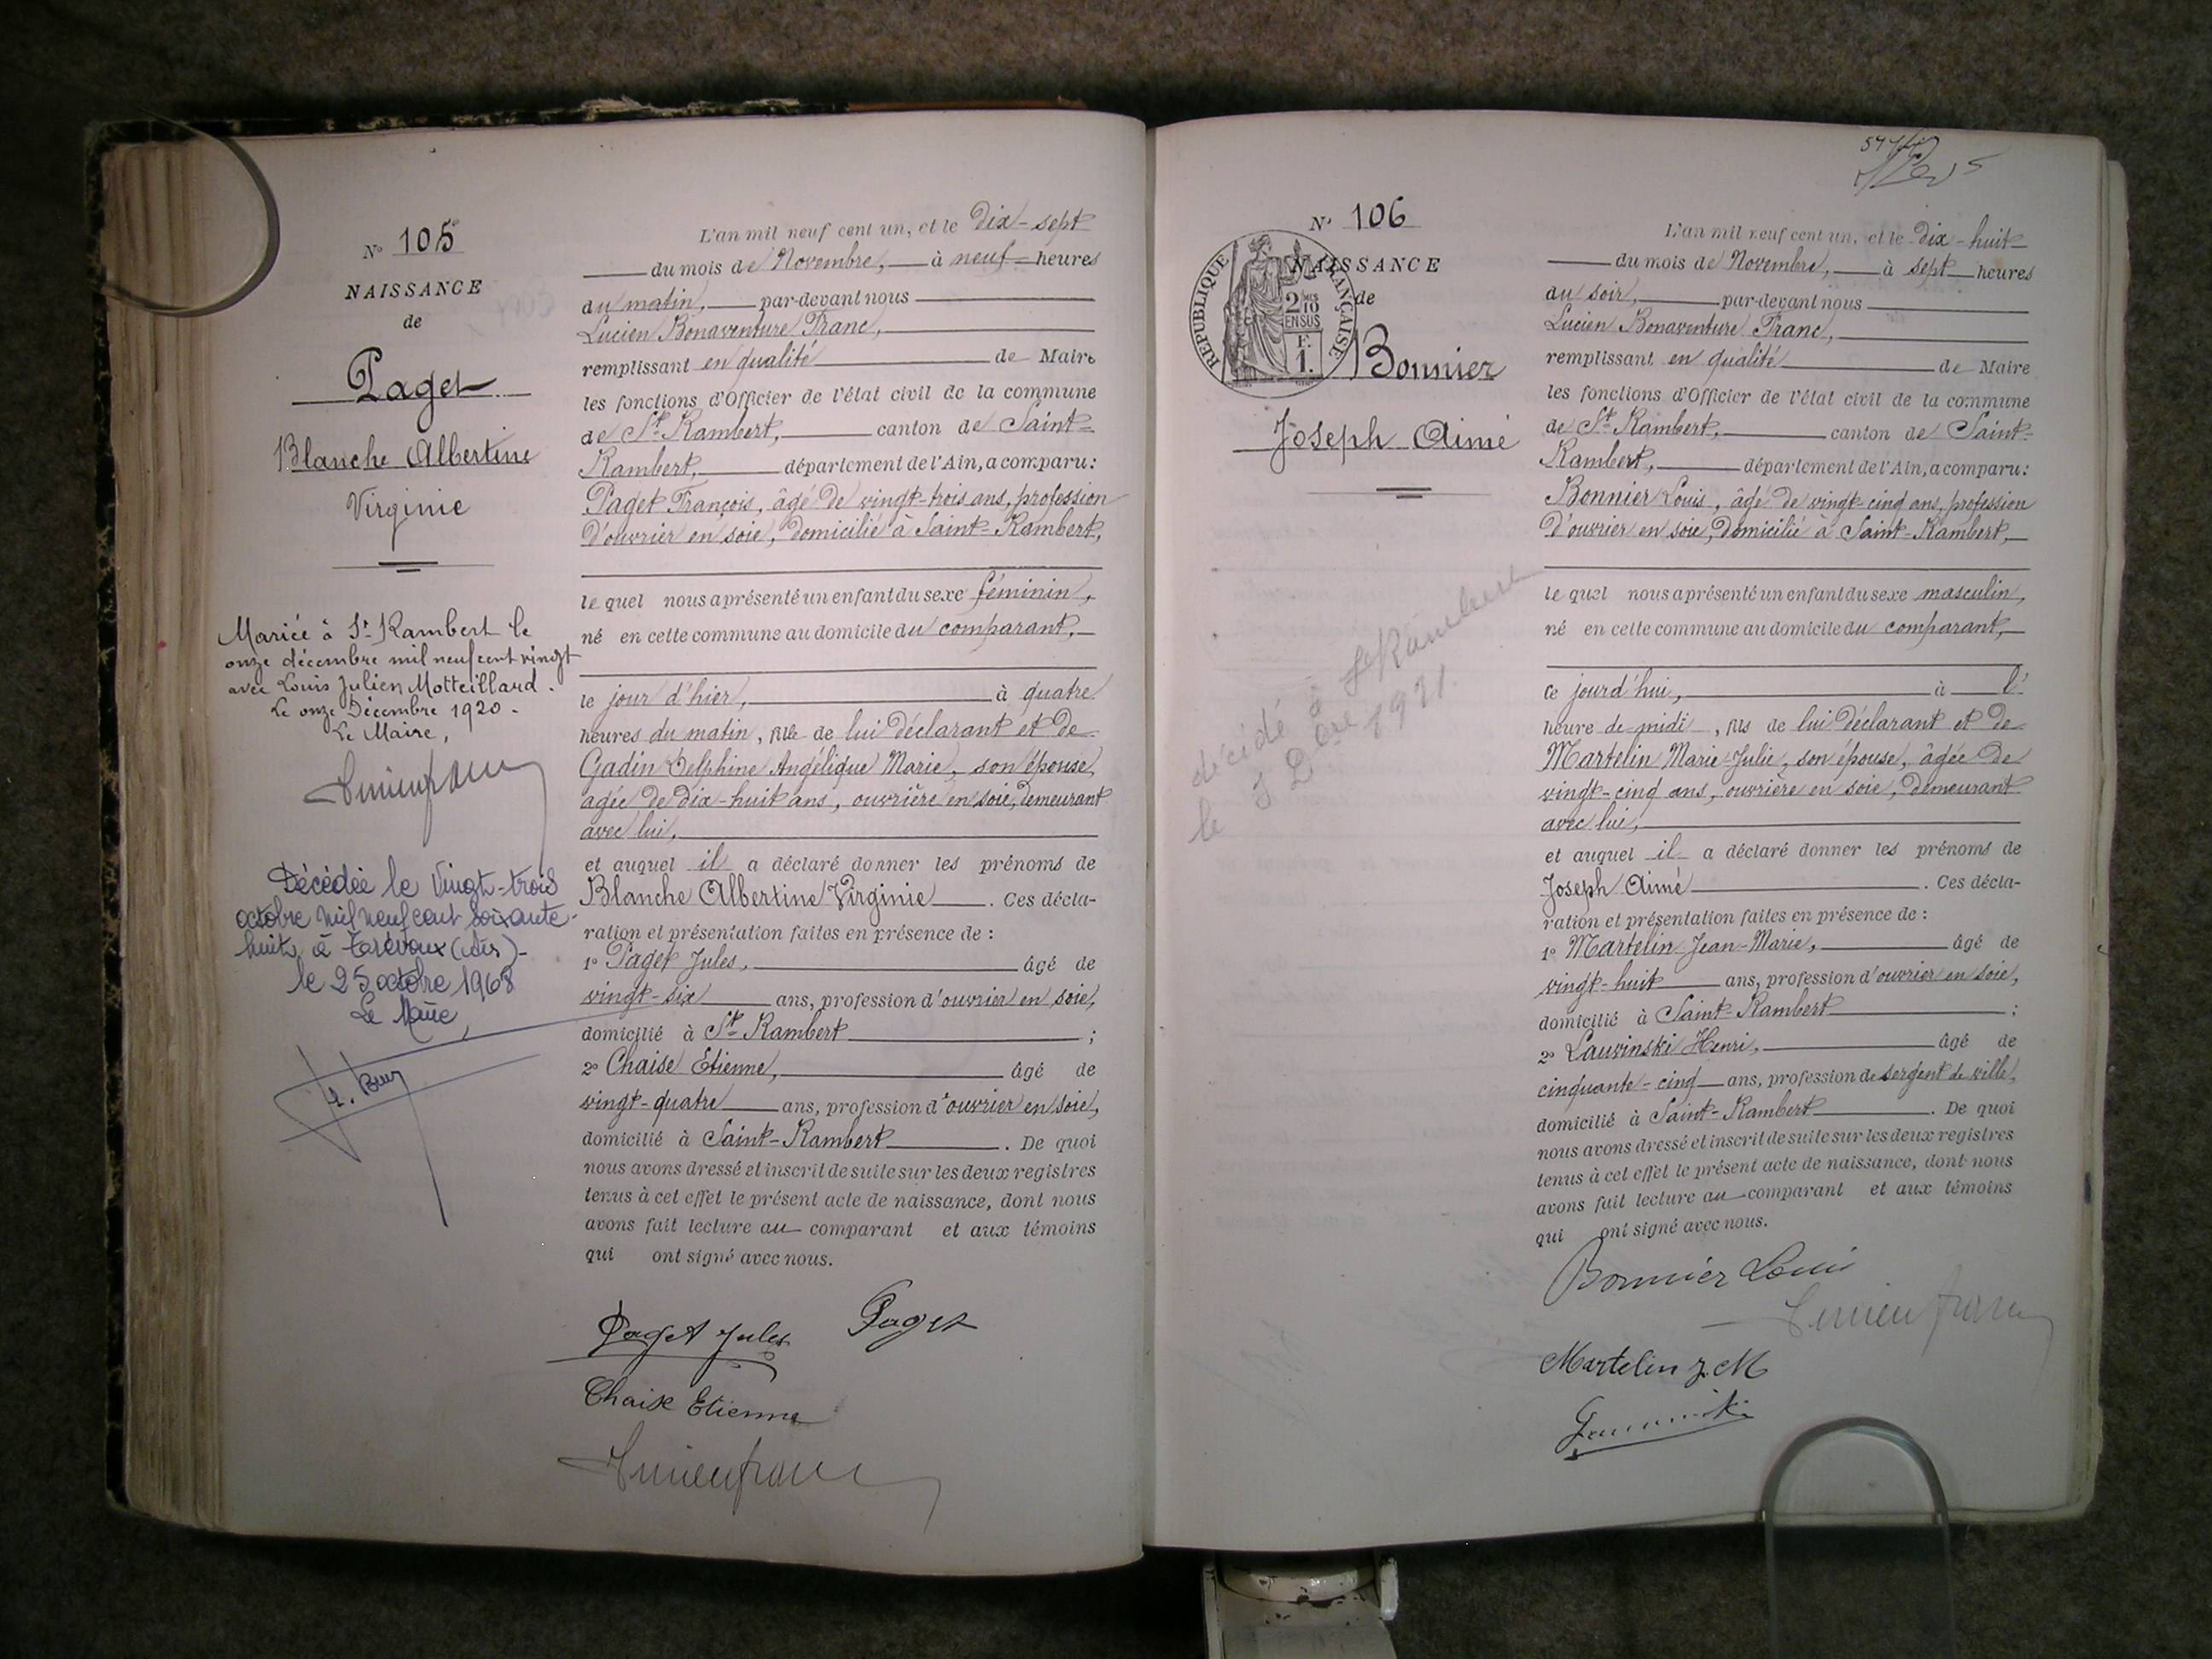 N° 105
NAISSANCE
de
Paget
Blanche Albertine
Virginie
Mariée à St Rambert le
onze décembre mil neuf cent vingt
avec Louis Julien Motteillard.
Le onze Décembre 1920.
Le Maire,
Décédée le Vingt-trois
octobre mil neuf cent soixante-
huit, à Trévoux (Ain)-
le 25 octobre 1968
Le Maire,
L'an mil neuf cent un, et le Dix-sept
du mois de Novembre, à neuf heures
du matin, par-devant nous
Lucien Bonaventure Franc,
remplissant en qualité de Maire
les fonctions d'Officier de l'état civil de la commune
de St Rambert, canton de Saint-
Rambert, département de l'Ain, a comparu:
Paget François, âgé de vingt-trois ans, profession
d'ouvrier en soie, domicilié à Saint-Rambert,
le quel nous a présenté un enfant du sexe féminin,
né en cette commune au domicile du comparant,
le jour d'hier, à quatre
heures du matin, fille de lui déclarant et de
Gadin Delphine Angélique Marie, son épouse,
agée de dix-huit ans, ouvrière en soie, demeurant
avec lui,
et auquel il a déclaré donner les prénoms de
Blanche Albertine Virginie. Ces décla-
ration et présentation faites en présence de :
1° Paget Jules, âgé de
vingt-six ans, profession d'ouvrier en soie,
domicilié à St Rambert ;
2° Chaise Etienne, âgé de
vingt-quatre ans, profession d'ouvrier en soie,
domicilié à Saint-Rambert. De quoi
nous avons dressé et inscrit de suite sur les deux registres
tenus à cet effet le présent acte de naissance, dont nous
avons fait lecture au comparant et aux témoins
qui ont signé avec nous.
Paget Jules Paget
Chaise Etienne
Lucien franc
N° 106
NAISSANCE
de
RÉPUBLIQUE FRANÇAISE
2/10 EN SUS
F. 1.
Bonnier
Joseph Aimé
décédé à St Rambert
le Dbre 1921.
L'an mil neuf cent un, et le dix-huit
du mois de Novembre, à sept heures
du soir, par-devant nous
Lucien Bonaventure Franc,
remplissant en qualité de Maire
les fonctions d'Officier de l'état civil de la commune
de St Rambert, canton de Saint-
Rambert, département de l'Ain, a comparu:
Bonnier Louis, âgé de vingt-cinq ans, profession
d'ouvrier en soie, domicilié à Saint-Rambert,
le quel nous a présenté un enfant du sexe masculin,
né en cette commune au domicile du comparant,
ce jourd'hui, à l'
heure de midi, fils de lui déclarant et de
Martelin Marie Julie, son épouse, âgée de
vingt-cinq ans, ouvrière en soie, demeurant
avec lui,
et auquel il a déclaré donner les prénoms de
Joseph Aimé. Ces décla-
ration et présentation faites en présence de :
1° Martelin Jean-Marie, âgé de
vingt-huit ans, profession d'ouvrier en soie,
domicilié à Saint-Rambert ;
2° Lauvinski Henri, âgé de
cinquante-cinq ans, profession de sergent de ville,
domicilié à Saint-Rambert. De quoi
nous avons dressé et inscrit de suite sur les deux registres
tenus à cet effet le présent acte de naissance, dont nous
avons fait lecture au comparant et aux témoins
qui ont signé avec nous.
Bonnier Louis
Lucien franc
Martelin J. M